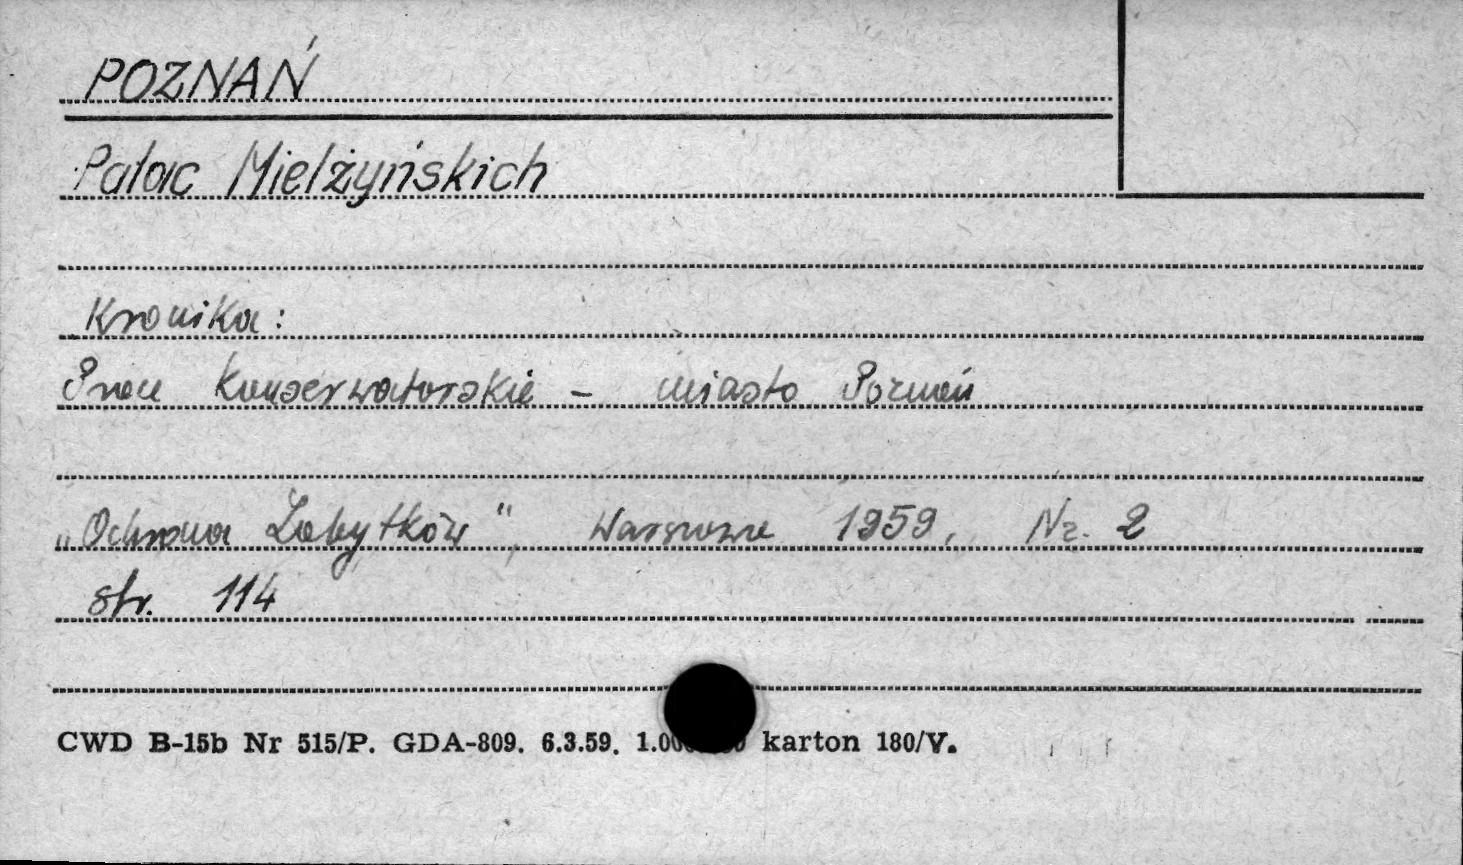 POZNAŃ
Pałac Mielżyńskich
Kronika:
Prace Konserwatorskie – miasto Poznań
„Ochrona Zabytków", Warszawa 1959, Nr. 2
str. 114
CWD B-15b Nr 515/P. GDA-809. 6.3.59. karton 180/V.